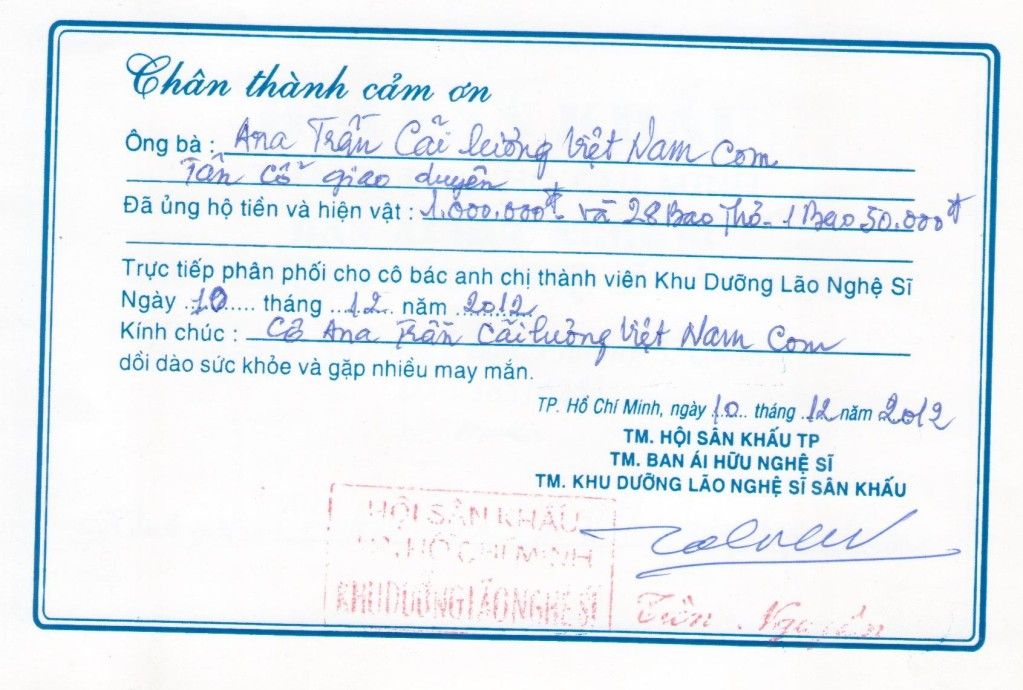 Chân thành cảm ơn
Ông bà : Ana Trần Cải lương Việt Nam Com
Tân cổ giao duyên
Đã ủng hộ tiền và hiện vật : 1.000.000đ và 28 Bao Thơ - 1 Bao 50.000đ
Trực tiếp phân phối cho cô bác anh chị thành viên Khu Dưỡng Lão Nghệ Sĩ
Ngày 10 tháng 12 năm 2012
Kính chúc : Cô Ana Trần Cải lương Việt Nam Com
dồi dào sức khỏe và gặp nhiều may mắn.
TP. Hồ Chí Minh, ngày 10 tháng 12 năm 2012
TM. HỘI SÂN KHẤU TP
TM. BAN ÁI HỮU NGHỆ SĨ
TM. KHU DƯỠNG LÃO NGHỆ SĨ SÂN KHẤU
HỘI SÂN KHẤU
TP. HỒ CHÍ MINH
KHU DƯỠNG LÃO NGHỆ SĨ